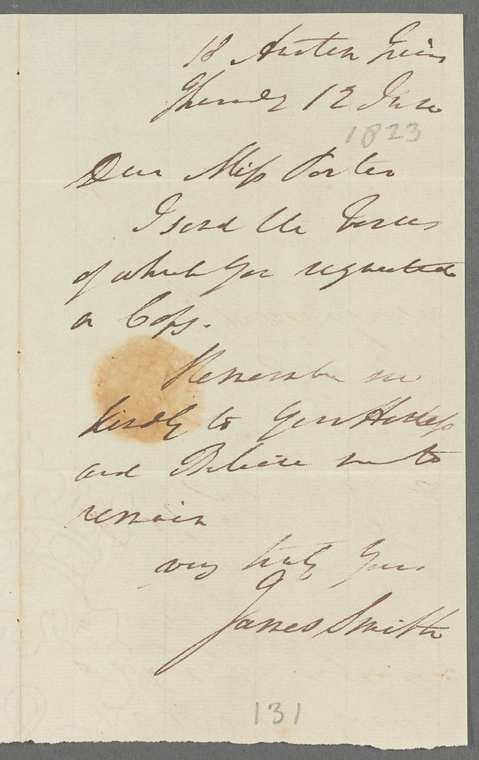 18 Austin Friars
Thursday 12 June
1823
Dear Miss Porter
I send the Verses
of which you requested
a Copy.
Remember me
kindly to your Hostess
and Believe me to
remain
very truly Yours
James Smith
131